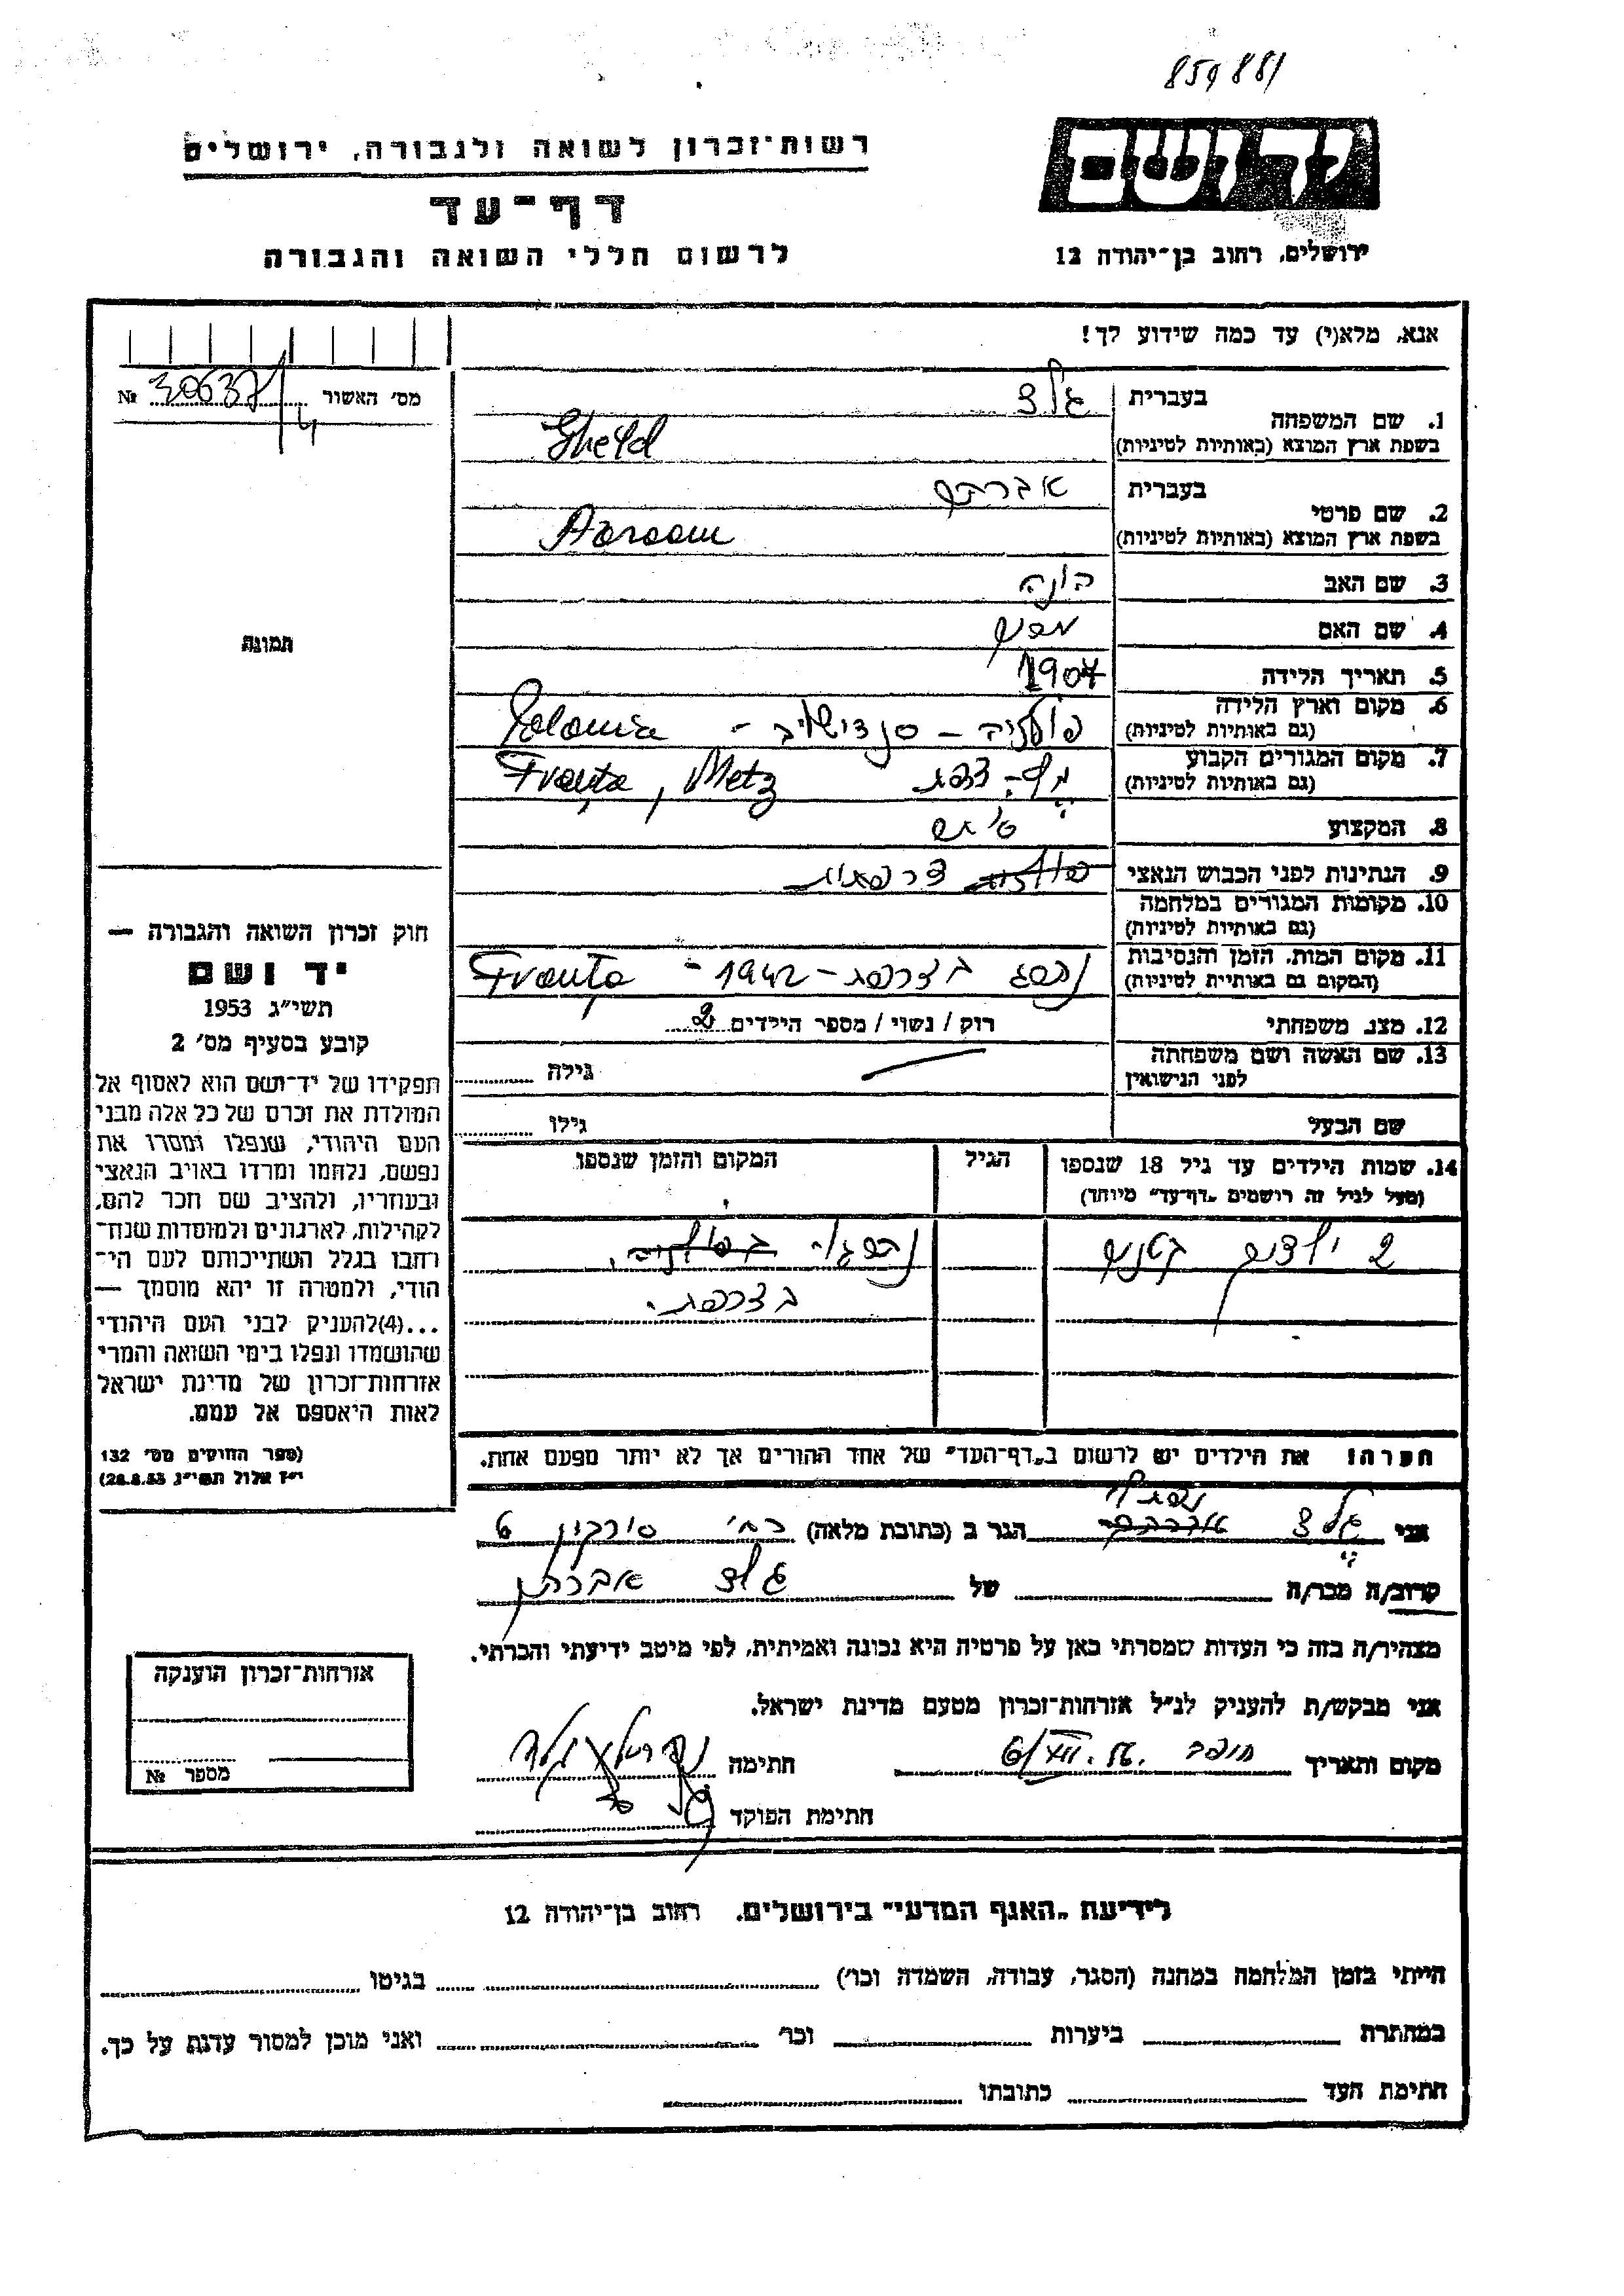 859881
יד ושם
רשות־זכרון לשואה ולגבורה, ירושלים
דף־עד
לרשום חללי השואה והגבורה
ירושלים, רחוב בן־יהודה 12
אנא, מלא(י) עד כמה שידוע לך!
מס׳ האשור № 30637/4
1. שם המשפחה
בעברית גלד
בשפת ארץ המוצא (באותיות לטיניות) Gheld
2. שם פרטי
בעברית אברהם
בשפת ארץ המוצא (באותיות לטיניות)
3. שם האב יונה
4. שם האם
5. תאריך הלידה 1907
6. מקום וארץ הלידה
(גם באותיות לטיניות) פולניה - Polonia
7. מקום המגורים הקבוע
(גם באותיות לטיניות) מץ - צרפת Franţa, Metz
8. המקצוע
9. הנתינות לפני הכבוש הנאצי פולנית צרפתית
10. מקומות המגורים במלחמה
(גם באותיות לטיניות)
11. מקום המות, הזמן והנסיבות
(המקום גם באותיות לטיניות) נהרג בצרפת - 1942 - Franţa
12. מצב משפחתי רוק / נשוי / מספר הילדים 2
13. שם האשה ושם משפחתה
לפני הנישואין גילה
שם הבעל גילו
14. שמות הילדים עד גיל 18 שנספו
(מעל לגיל זה רושמים „דף־עד״ מיוחד)
הגיל
המקום והזמן שנספו
2 ילדים קטנים נהרגו בפולניה.
בצרפת.
הערה: את הילדים יש לרשום ב„דף־העד״ של אחד ההורים אך לא יותר מפעם אחת.
תמונה
חוק זכרון השואה והגבורה —
יד ושם
תשי״ג 1953
קובע בסעיף מס׳ 2
תפקידו של יד־ושם הוא לאסוף אל
המולדת את זכרם של כל אלה מבני
העם היהודי, שנפלו ומסרו את
נפשם, נלחמו ומרדו באויב הנאצי
ובעוזריו, ולהציב שם וזכר להם,
לקהילות, לארגונים ולמוסדות שנח־
רבו בגלל השתייכותם לעם הי־
הודי, ולמטרה זו יהא מוסמך —
...(4)להעניק לבני העם היהודי
שהושמדו ונפלו בימי השואה והמרי
אזרחות־זכרון של מדינת ישראל
לאות היאספם אל עמם.
(ספר החוקים מס׳ 132
י״ז אלול תשי״ג, 28.8.53)
אני גלד הגר ב (כתובת מלאה) רח׳ סירקין 6
קרוב/ה מכר/ה של גלד אברהם
מצהיר/ה בזה כי העדות שמסרתי כאן על פרטיה היא נכונה ואמיתית, לפי מיטב ידיעתי והכרתי.
אני מבקש/ת להעניק לנ״ל אזרחות־זכרון מטעם מדינת ישראל.
מקום ותאריך 6/XII.56. חתימה
חתימת הפוקד
אזרחות־זכרון הוענקה
מספר №
לידיעת „האגף המדעי״ בירושלים, רחוב בן־יהודה 12
הייתי בזמן המלחמה במחנה (הסגר, עבודה, השמדה וכו׳) בגיטו
במחתרת ביערות וכו׳ ואני מוכן למסור עדות על כך.
חתימת העד כתובתו